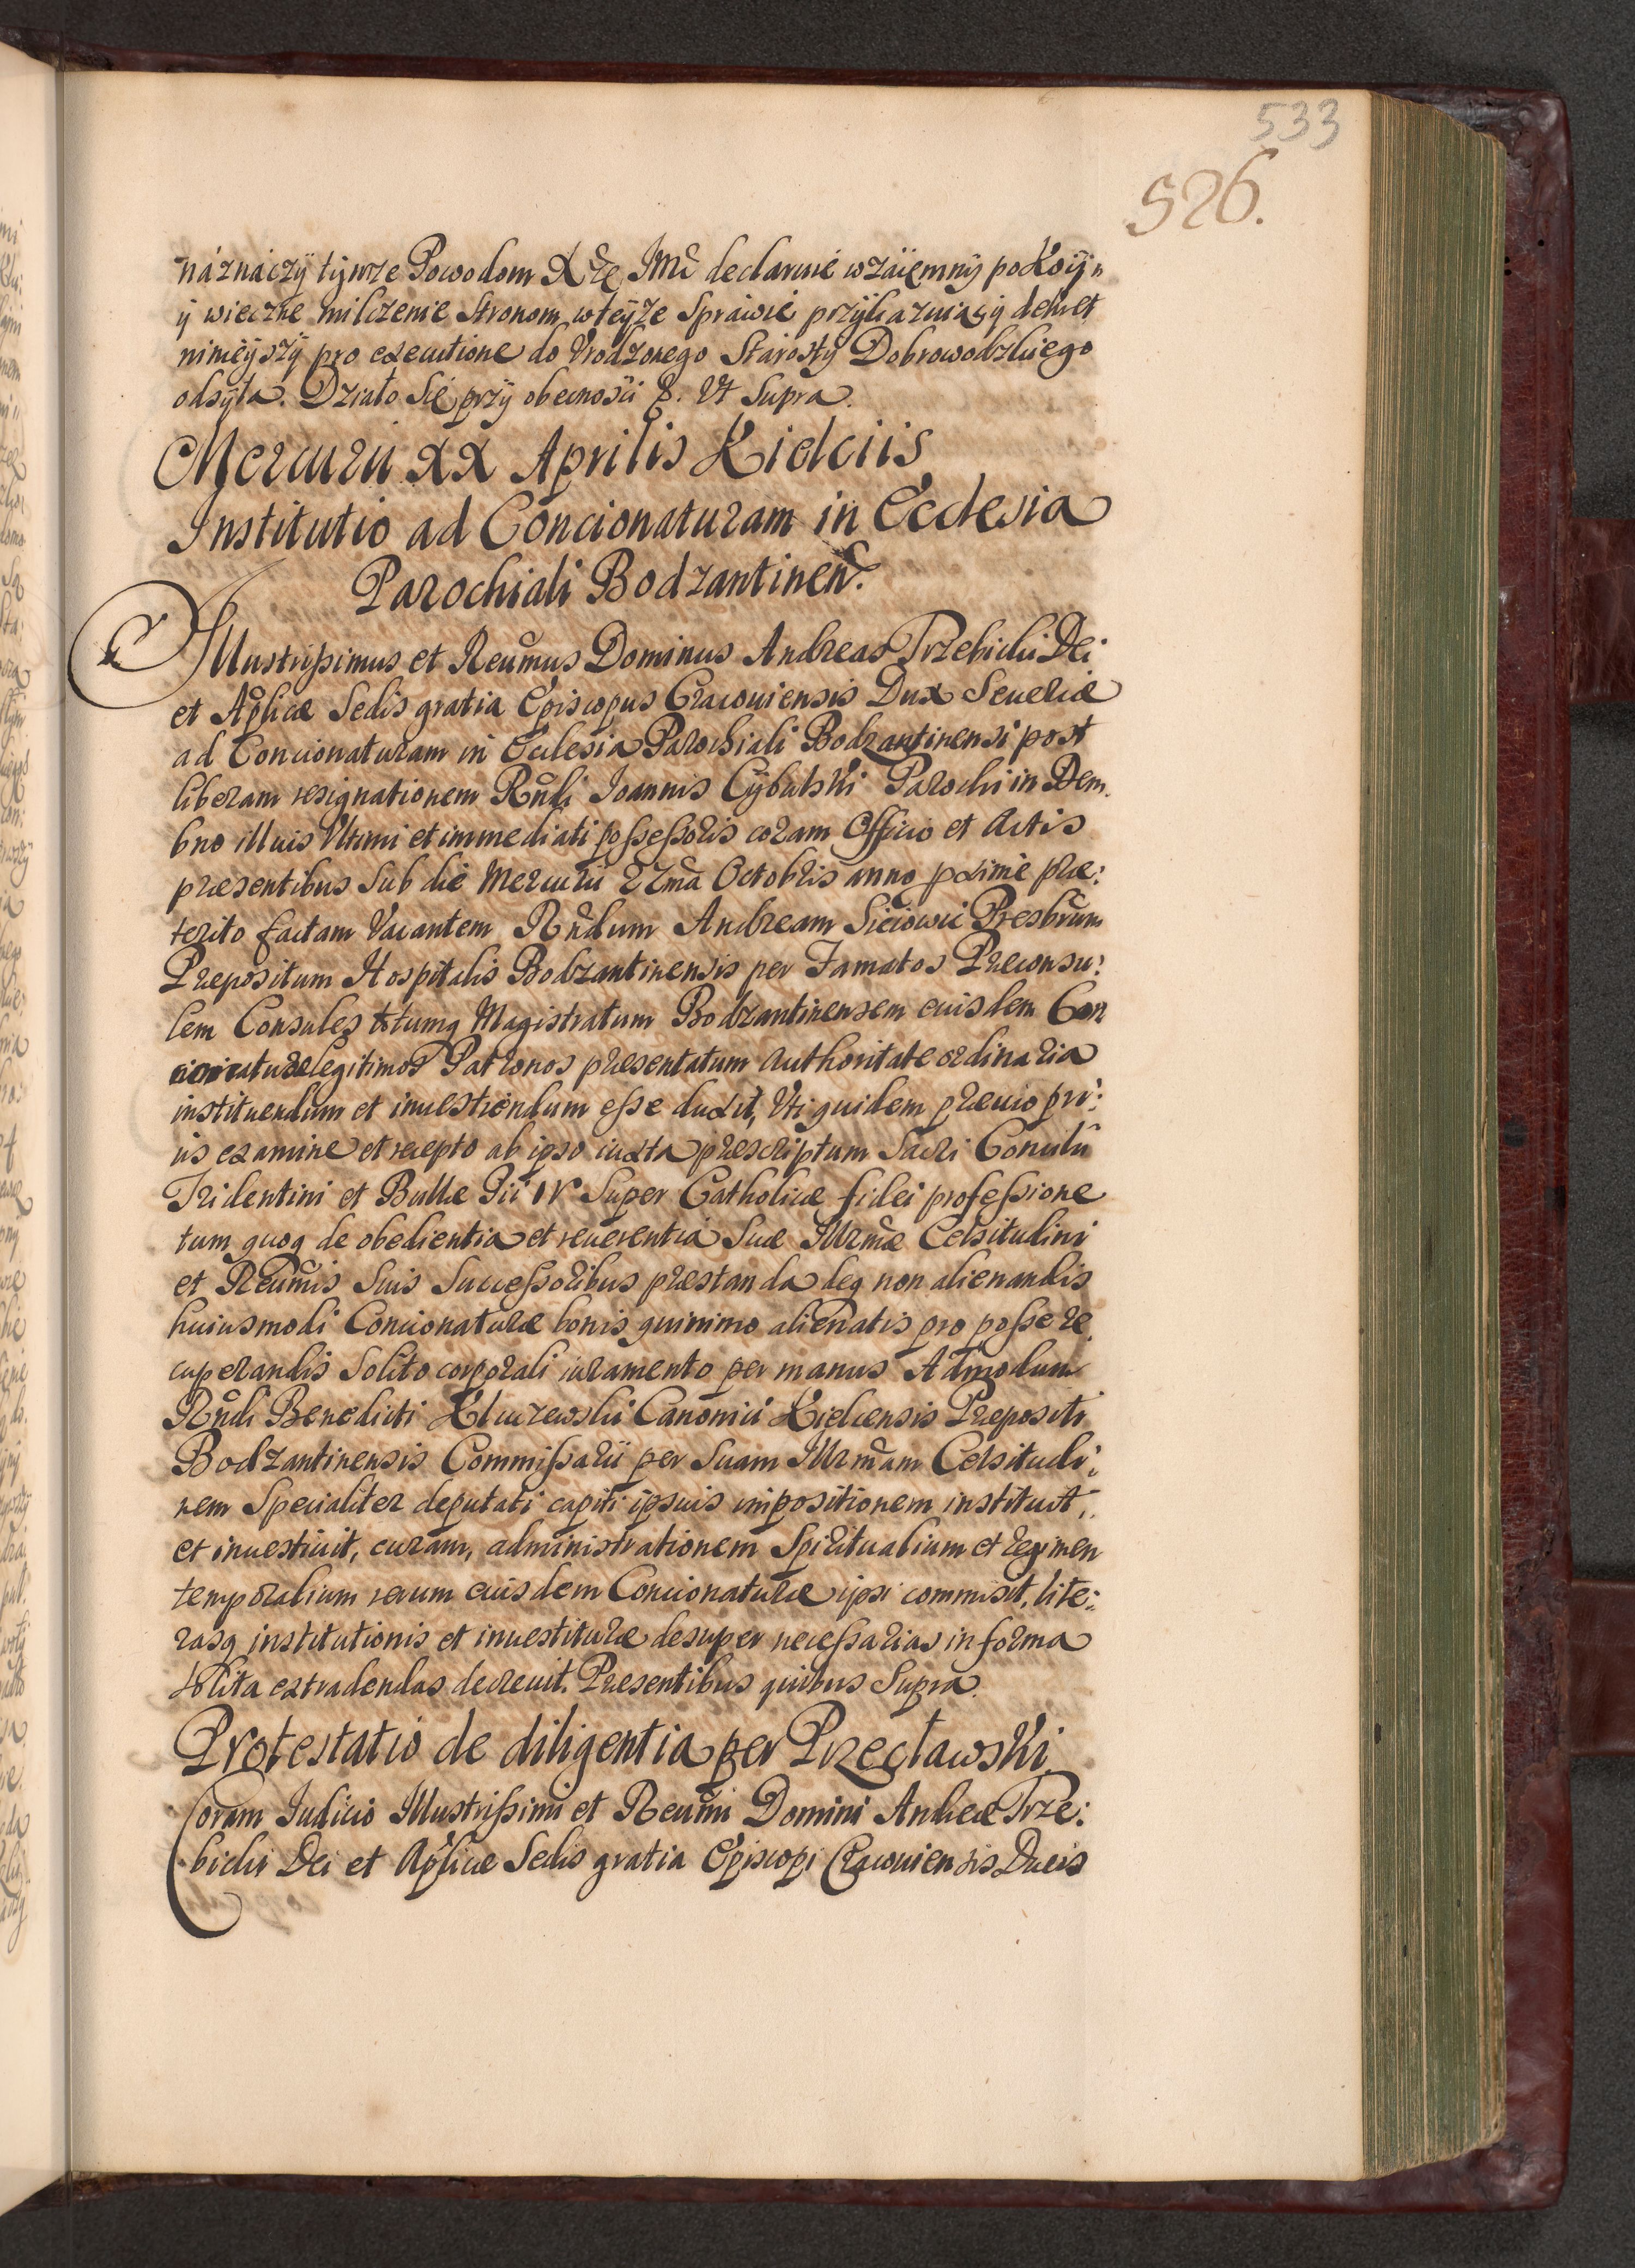 533
526.
náznáczÿ tÿmze Powodom Xże Jmć declaruie wzaięmnÿ pokoÿ
ÿ wieczne milczenie Stronom wteÿże Spráwie przÿkazuiąc ÿ dekret
ninieÿszÿ pro executione do Urodzonego Stárostÿ Dobrowodzkiego
odsÿła. Działo Się przÿ obecności &. Ut Supra.
Mercurii XX Aprilis Kielciis
Institutio ad Concionaturam in Ecclesia
Parochiali Bodzantinen.
Illustrißimus et Reumus Dominus Andreas Trzebicki Dei
et Aplicæ Sedis gratia Episcopus Cracouiensis Dux Seueriæ
ad Concionaturam in Ecclesia Parochiali Bodzantinensi post
liberam resignationem Rndi Joannis Cÿbulski Parochi in Dem
bno illius Ultimi et immediati possessoris coram Officio et Actis
præsentibus Sub die Mercurii 22ma Octobris anno pxime præ:
terito factam Vacantem Rndum Andream Siciowic Presbrum
Præpositum Hospitalis Bodzantinensis per Famatos Præconsu:
lem Consules totumq Magistratum Bodzantinensem eiusdem Con
cionaturæ legitimos Patronos præsentatum Authoritate ordinaria
instituendum et inuestiendum esse duxit, Uti quidem præuio pri:
us examine et recepto ab ipso iuxta præscriptum Sacri Concilii
Tridentini et Bullæ Pii IV Super Catholicæ fidei professione
tum quoq de obedientia et reuerentia Suæ Illrmæ Celsitudini
et Reumis Suis Successoribus præstanda deq non alienandis
huiusmodi Concionaturæ bonis quinimo alienatis pro posse re
cuperandis Solito corporali iuramento per manus Admodum
Rndi Benedicti Kluczewski Canonici Kielcensis Præpositi
Bodzantinensis Commissarii per Suam Illrmam Celsitudi:
nem Specialiter deputati capiti ipsius impositionem instituit,
et inuestiuit, curam, administrationem Spiritualium et regimen
temporalium rerum eiusdem Concionaturæ ipsi commisit, lite:
rasq institutionis et inuestituræ desuper necessarias in forma
Solita extradendas decreuit. Præsentibus quibus Supra.
Protestatio de diligentia per Przecławski.
Coram Judicio Illustrissimi et Reumi Domini Andreæ Trze:
bicki Dei et Aplicæ Sedis gratia Episcopi Cracouiensis Ducis